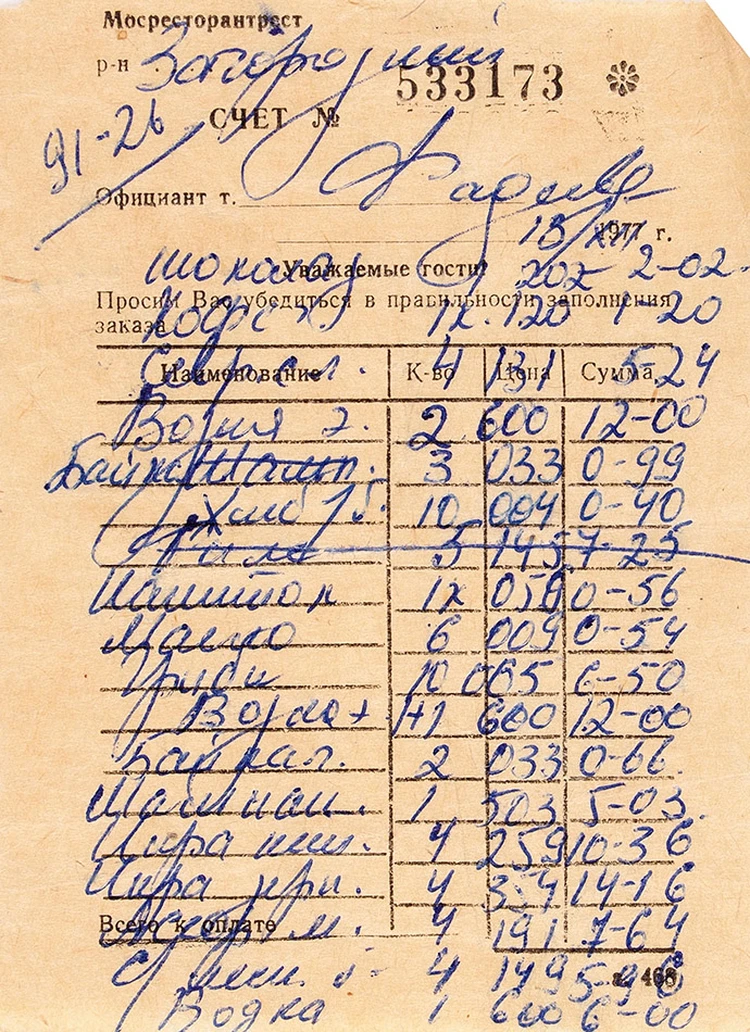 Мосресторантрест
р-н Загородный
533173
СЧЕТ №
91-26
Официант т.
18/XII 1977 г.
Шоколад 202 2-02
Уважаемые гости!
Просим Вас убедиться в правильности заполнения
заказа
Кофе 1х. 120 1-20
4 131 5-24
Наименование К-во Цена Сумма
2 600 12-00
Байк 3 033 0-99
Хлеб 10 004 0-40
5 145 7-25
1х 056 0-56
Масло 6 009 0-54
Грибы 10 065 6-50
Водка 1+1 600 12-00
Байкал. 2 033 0-66
1 503 5-03
Икра 4 259 10-36
Икра 4 354 14-16
Всего к оплате
м. 4 191 7-64
4 149 5-96
468
Водка 1 600 6-00